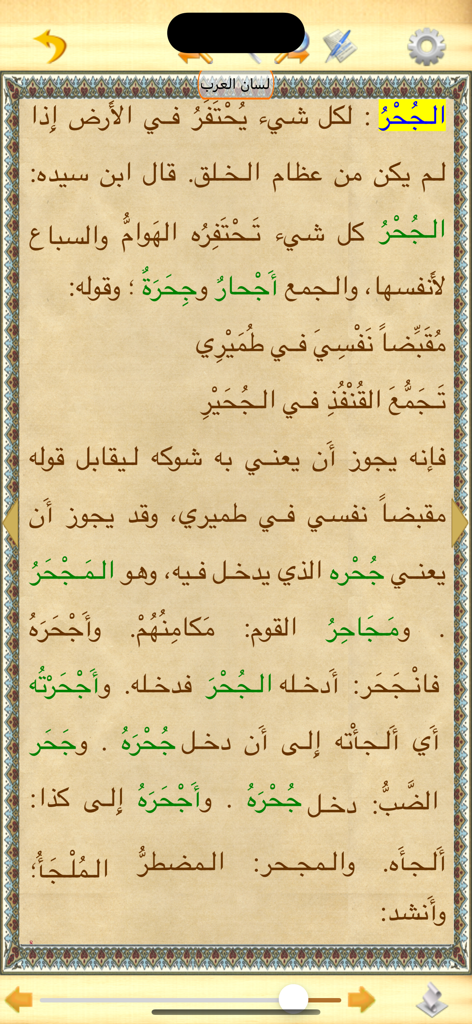 لسان العرب
الجُحْرُ : لكل شيء يُحْتَفَرُ في الأَرض إِذا
لم يكن من عظام الخلق. قال ابن سيده:
الجُحْرُ كل شيء تَحْتَفِرُه الهَوامُّ والسباع
لأَنفسها، والجمع أَجْحارٌ وجِحَرَةٌ ؛ وقوله:
مُقَبِّضاً نَفْسِيَ في طُمَيْرِي
تَجَمُّعَ القُنْفُذِ في الجُحَيْرِ
فإِنه يجوز أَن يعني به شوكه ليقابل قوله
مقبضاً نفسي في طميري، وقد يجوز أَن
يعني جُحْره الذي يدخل فيه، وهو المَجْحَرُ
. ومَجَاحِرُ القوم: مَكامِنُهُمْ. وأَجْحَرَهُ
فانْجَحَر: أَدخله الجُحْرَ فدخله. وأَجْحَرْتُه
أَي أَلجأْته إِلى أَن دخل جُحْرَهُ . وجَحَر
الضَّبُّ: دخل جُحْرَهُ . وأَجْحَرَهُ إِلى كذا:
أَلجأَه. والمجحر: المضطرُّ المُلْجَأُ؛
وأَنشد: